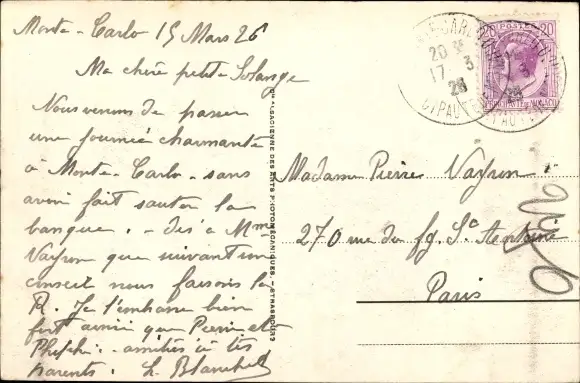 Monte-Carlo 15 Mars 26
Ma chère petite Solange
Nous venons de passer
une journée charmante
à Monte-Carlo - sans
avoir fait sauter la
banque. - Dis à Mme
Vayron que suivant son
conseil nous faisons la
R. Je t'embrasse bien
fort ainsi que Pierre et
amitiés à tes
parents. L. Blanchet
Cie ALSACIENNE DES ARTS PHOTOMÉCANIQUES - STRASBOURG
20
17 3
26
POSTES
Madame Pierre Vayron
270 rue du fg. St Antoine
Paris